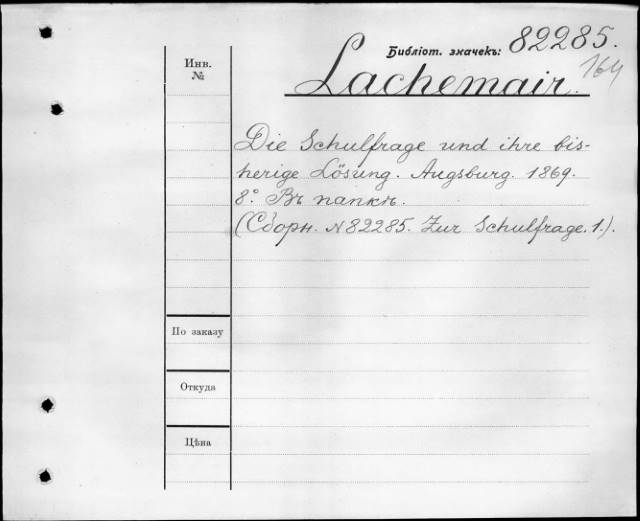 Библіот. значекъ: 82285.
164
Инв.
№
Lachemair.
Die Schulfrage und ihre bis-
herige Lösung. Augsburg. 1869.
8° Въ папкѣ.
(Сборн. №82285. Zur Schulfrage. 1.).
По заказу
Откуда
Цѣна